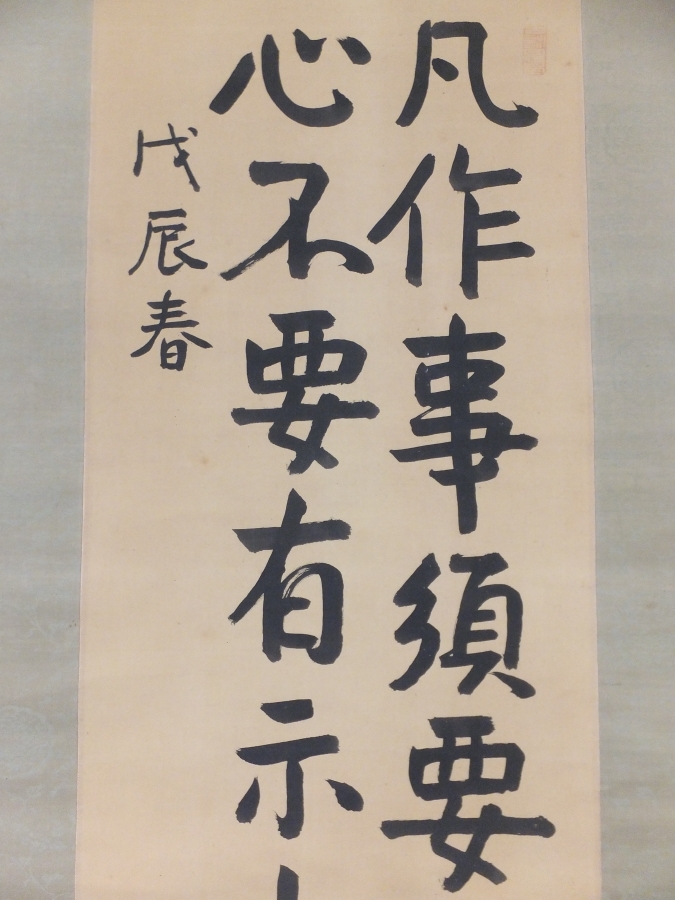 凡作事須要
心不要有示
戊辰春